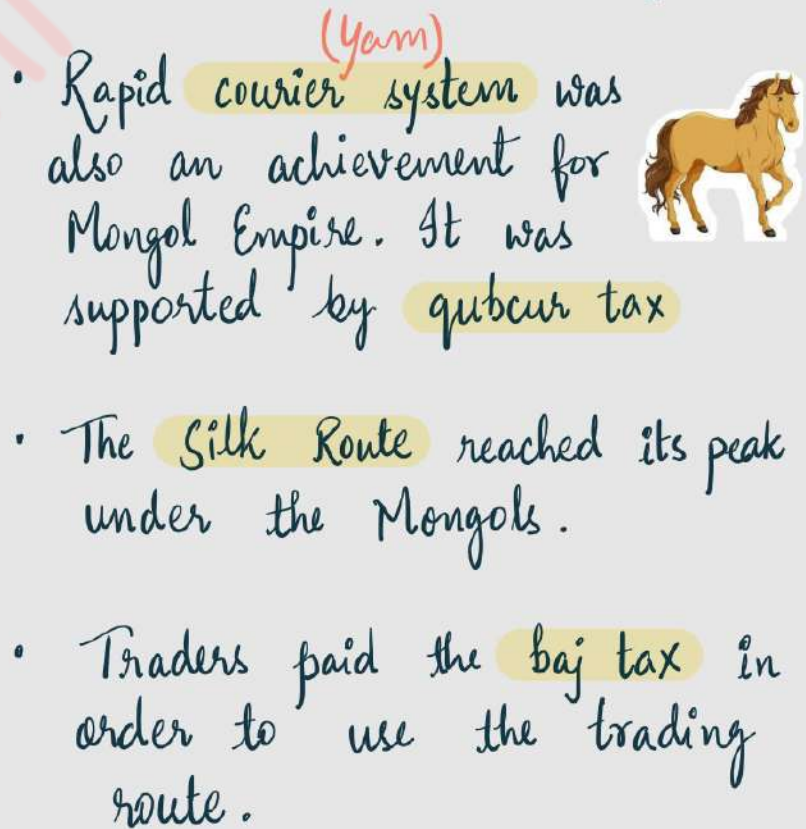 (Yam)
• Rapid courier system was
also an achievement for
Mongol Empire. It was
supported by qubcur tax
• The Silk Route reached its peak
under the Mongols.
• Traders paid the baj tax in
order to use the trading
route.